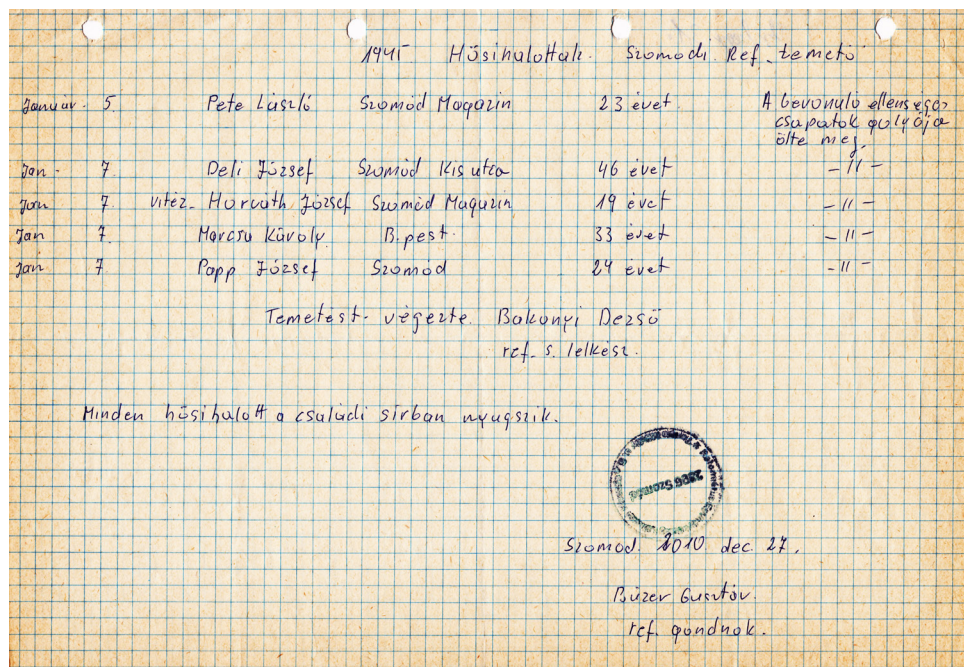 1945 Hősihalottak. Szomódi Ref. temető
Január. 5. Pete László Szomód Magazin 23 évet. A bevonuló ellenséges
csapatok golyója
ölte meg.
Jan - 7. Deli József Szomód Kis utca 46 évet - 11 -
Jan 7. vitéz. Horváth József Szomód Magazin 19 évet - 11 -
Jan 7. Károly B.pest. 33 évet - 11 -
Jan. 7 Papp József Szomód 24 évet - 11 -
Temetest- végezte. Bakonyi Dezső
ref. s. lelkész.
Minden hősihalott a családi sírban nyugszik.
2896 Szomód
Szomód. 2010 dec. 27.
Gusztáv.
ref. gondnok.